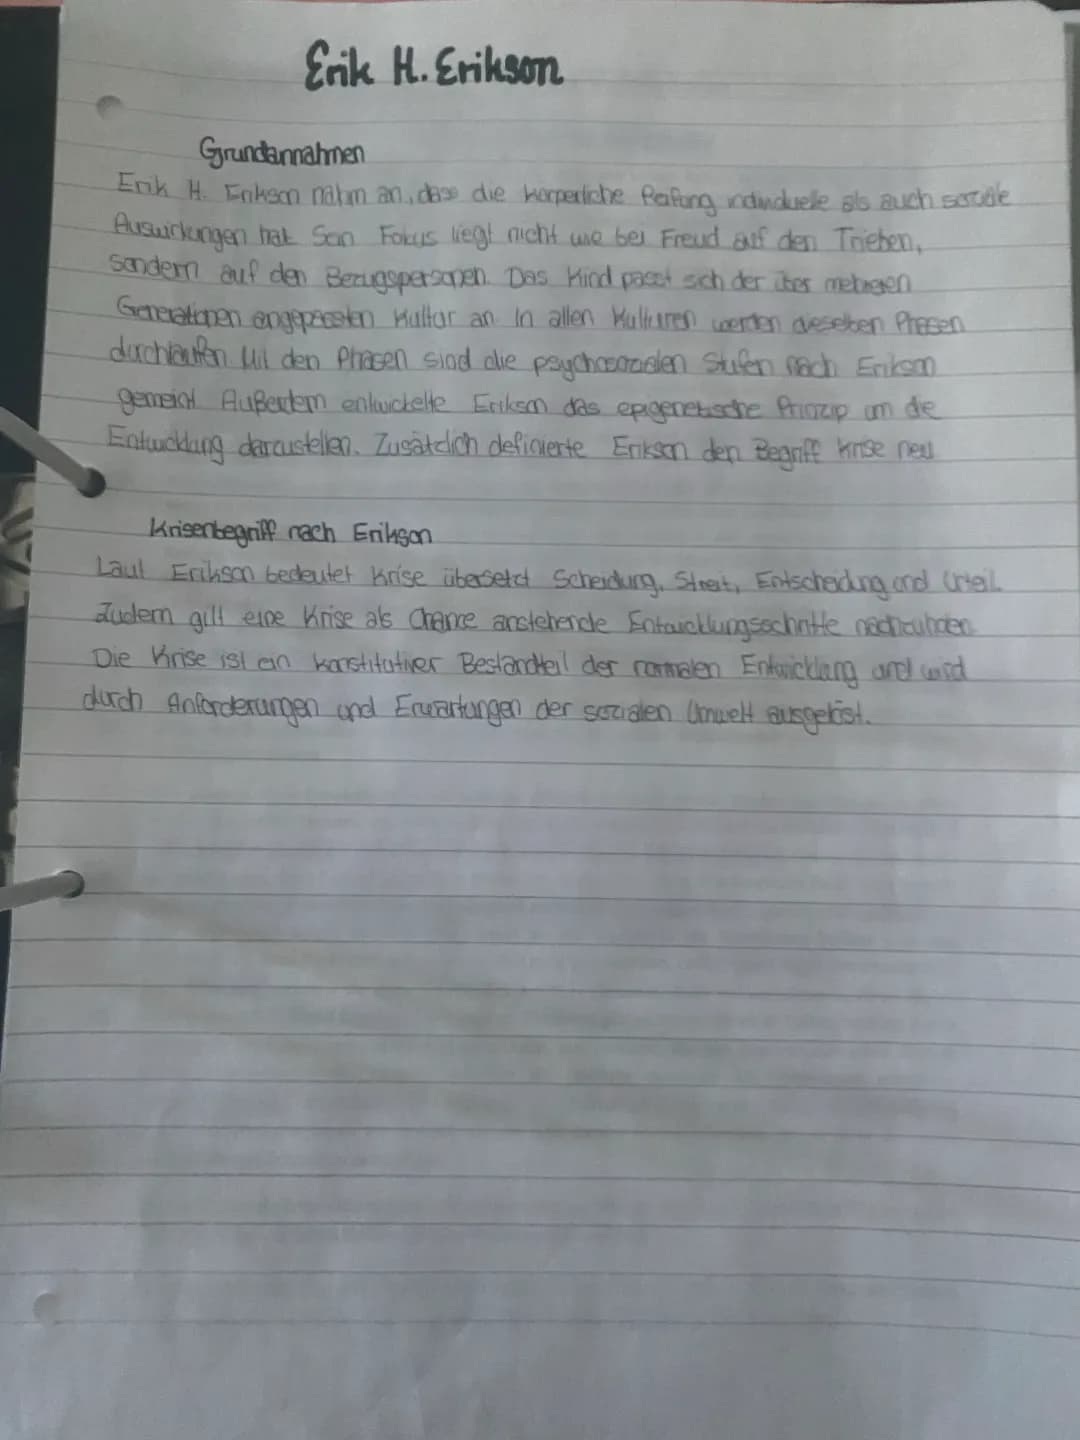 Erik H. Erikson
Grundannahmen
Erik H. Erikson nahm an, dass die körperliche Reifung individuelle als auch soziale
Auswirkungen hat. Sein Fokus liegt nicht wie bei Freud auf den Trieben,
sondern auf den Bezugspersonen. Das Kind passt sich der über mehrgen
Generationen angepassten Kultur an. In allen Kulturen werden dieselben Phasen
durchlaufen. Mit den Phasen sind die psychosozialen Stufen nach Erikson
gemeint. Außerdem entwickelte Erikson das epigenetische Prinzip um die
Entwicklung darzustellen. Zusätzlich definierte Erikson den Begriff Krise neu.
Krisenbegriff nach Erikson
Laut Erikson bedeutet Krise übersetzt Scheidung, Streit, Entscheidung und Urteil.
Zudem gilt eine Krise als Chance anstehende Entwicklungsschritte nachzuholen.
Die Krise ist ein konstitutiver Bestandteil der normalen Entwicklung und wird
durch Anforderungen und Erwartungen der sozialen Umwelt ausgelöst.